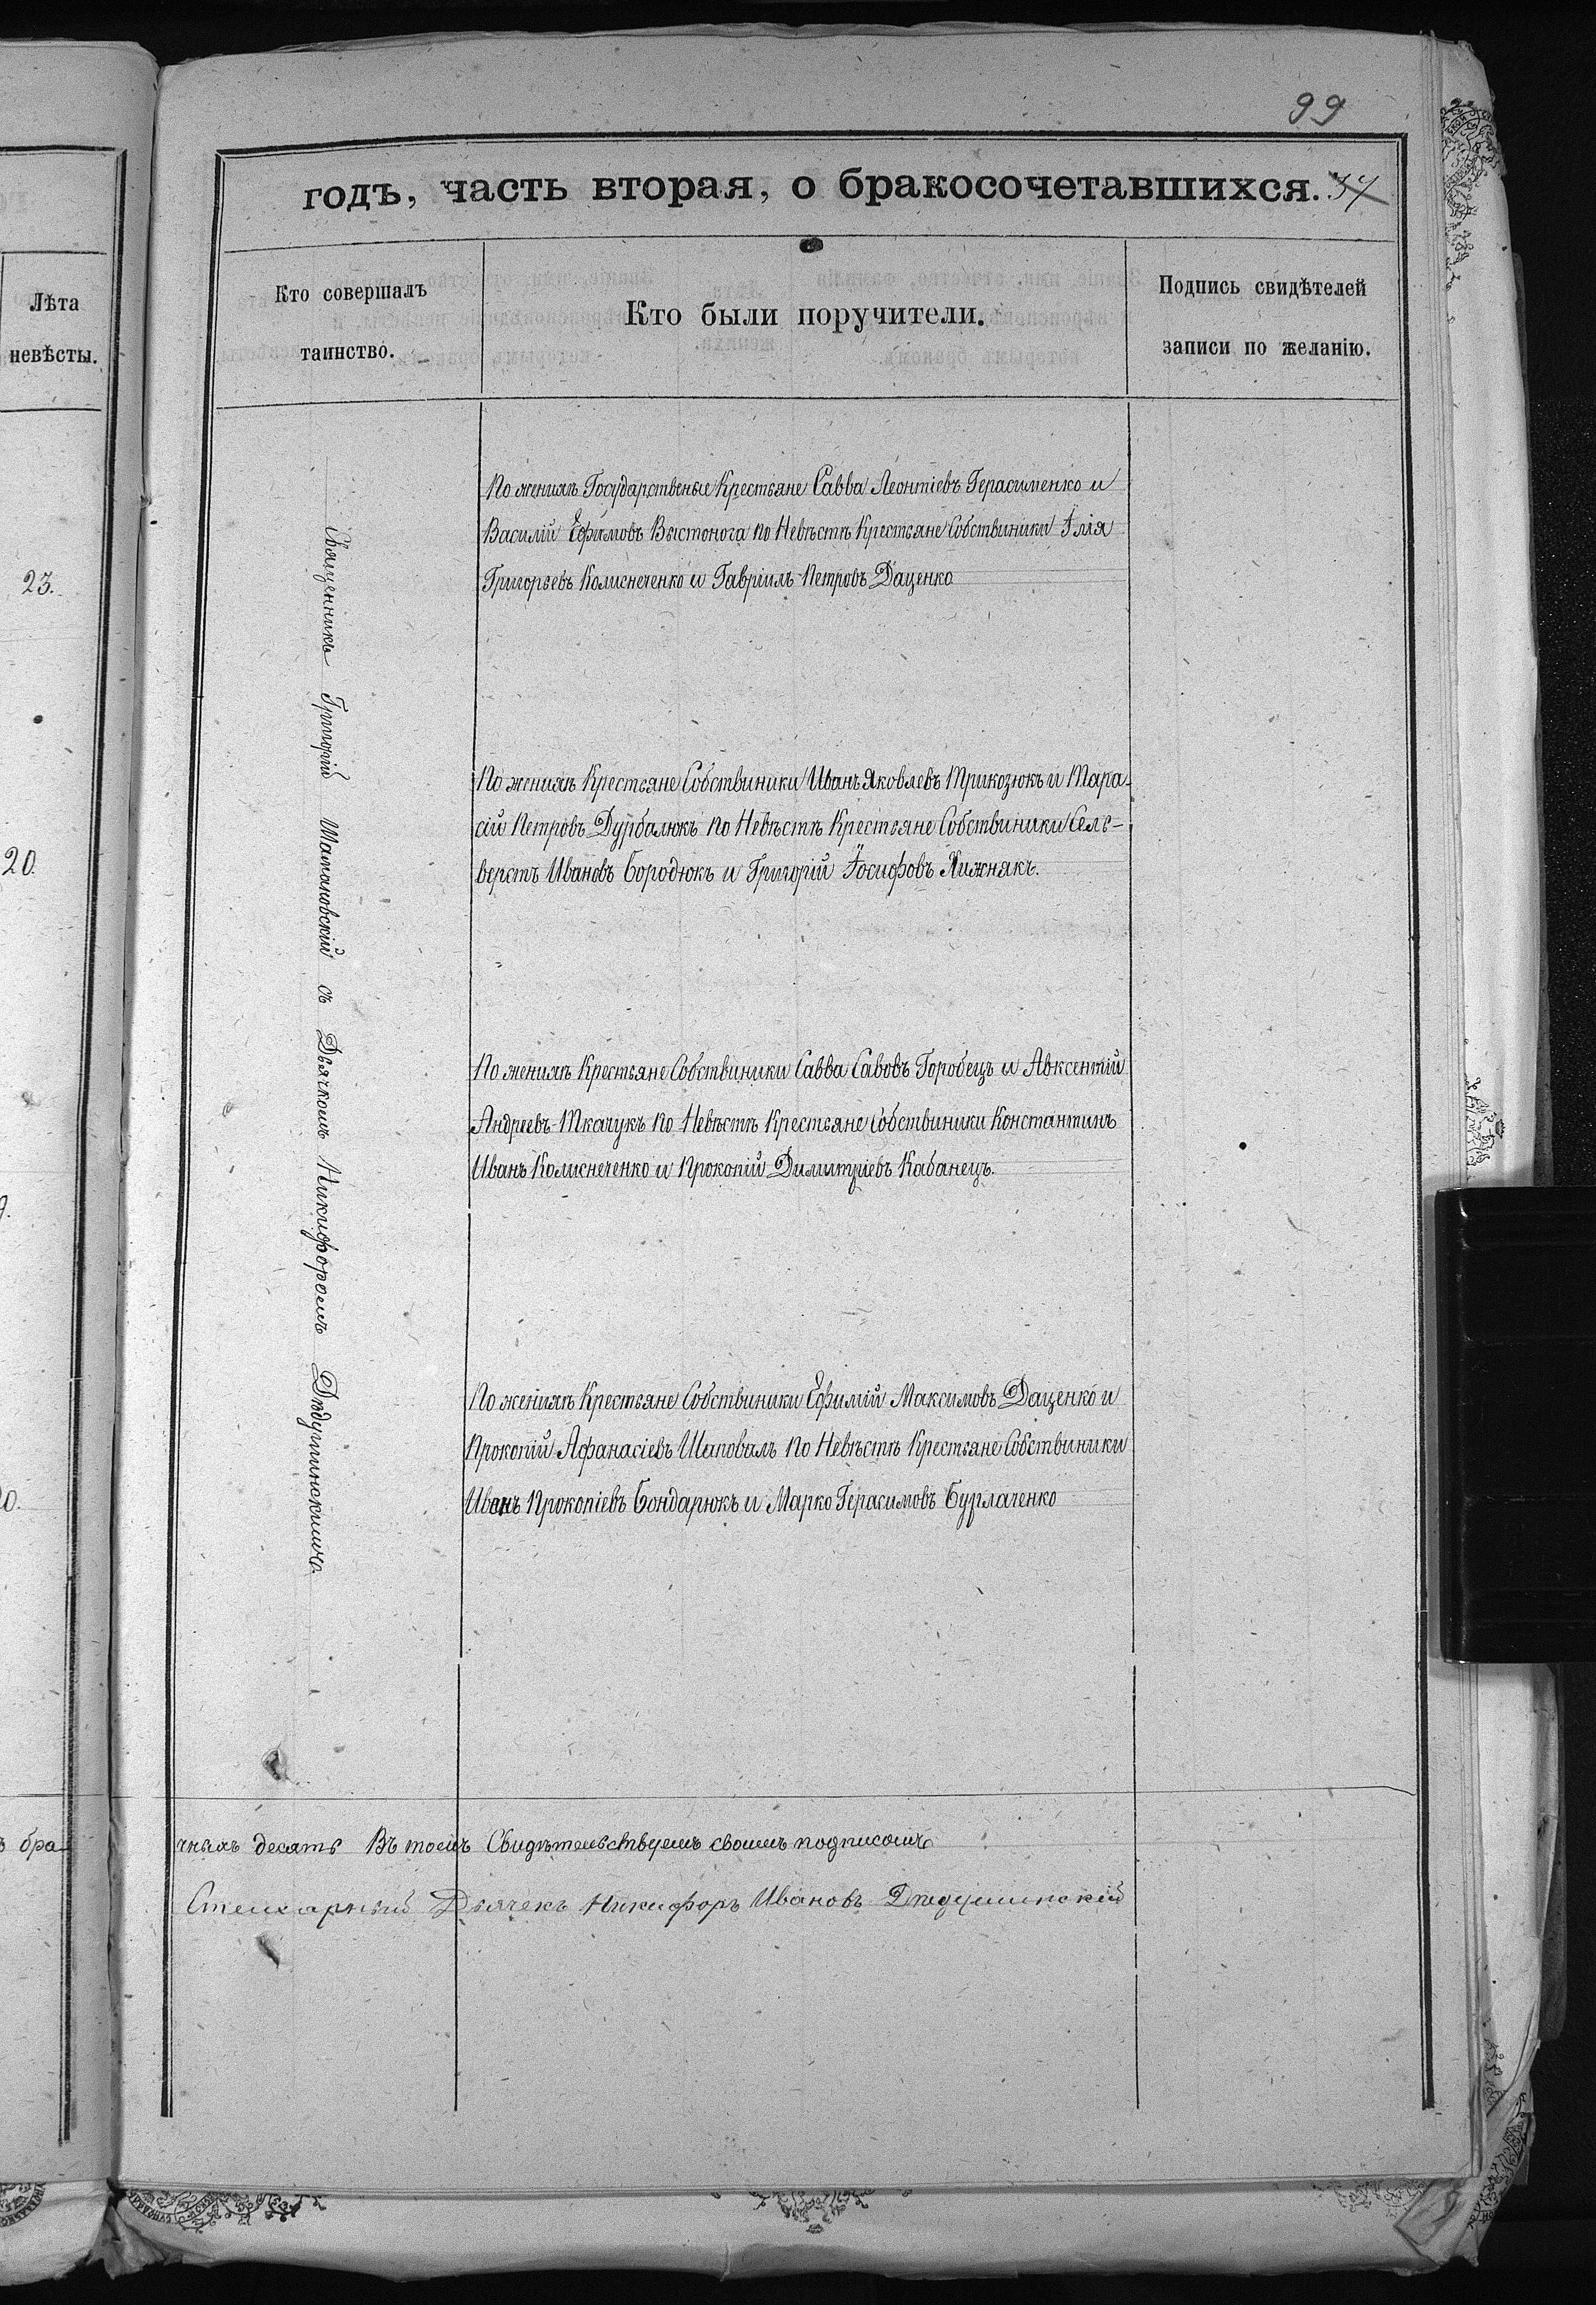 99
годъ, часть вторая, о бракосочетавшихся. 37
Лѣта
невѣсты.
Кто совершалъ
таинство.
Кто были поручители.
Подпись свидѣтелей
записи по желанію.
23.
20.
9.
20.
Священникъ Григорій Шамановскій съ Дьячкомъ Никифоромъ Дѣдушинскимъ
По женихѣ Государственые Крестьяне Савва Леонтіевъ Герасименко и
Василій Ефимовъ Выстонога по Невѣстѣ Крестьяне Собствиники Ілія
Григорьевъ Колисниченко и Гавріилъ Петровъ Даценко
По женихѣ Крестьяне Собствиники Иванъ Яковлевъ Трикозюкъ и Тара-
сій Петровъ Дурбалюкъ по Невѣстѣ Крестьяне Собствиники Сель-
верстъ Ивановъ Бородюкъ и Григорій Іосифовъ Хижнякъ.
По женихѣ Крестьяне Собствиники Савва Савовъ Горобецъ и Авксентій
Андреевъ Ткачукъ по Невѣстѣ Крестьяне Собствиники Константинъ
Иванъ Колисниченко и Прокопій Димитріевъ Кабанецъ.
По женихѣ Крестьяне Собствиники Ефимій Максимовъ Даценко и
Прокопій Афанасіевъ Шаповалъ по Невѣстѣ Крестьяне Собствиники
Иванъ Прокопіевъ Бондарюкъ и Марко Герасимовъ Бурлаченко
бра-
чныхъ десять Въ томъ Свидѣтельствуемъ своимъ подписомъ
Дьячекъ Никифоръ Ивановъ Дѣдушинскій